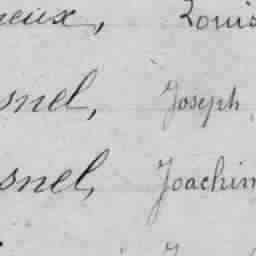 neux, Louis
snel, Joseph
snel, Joachim